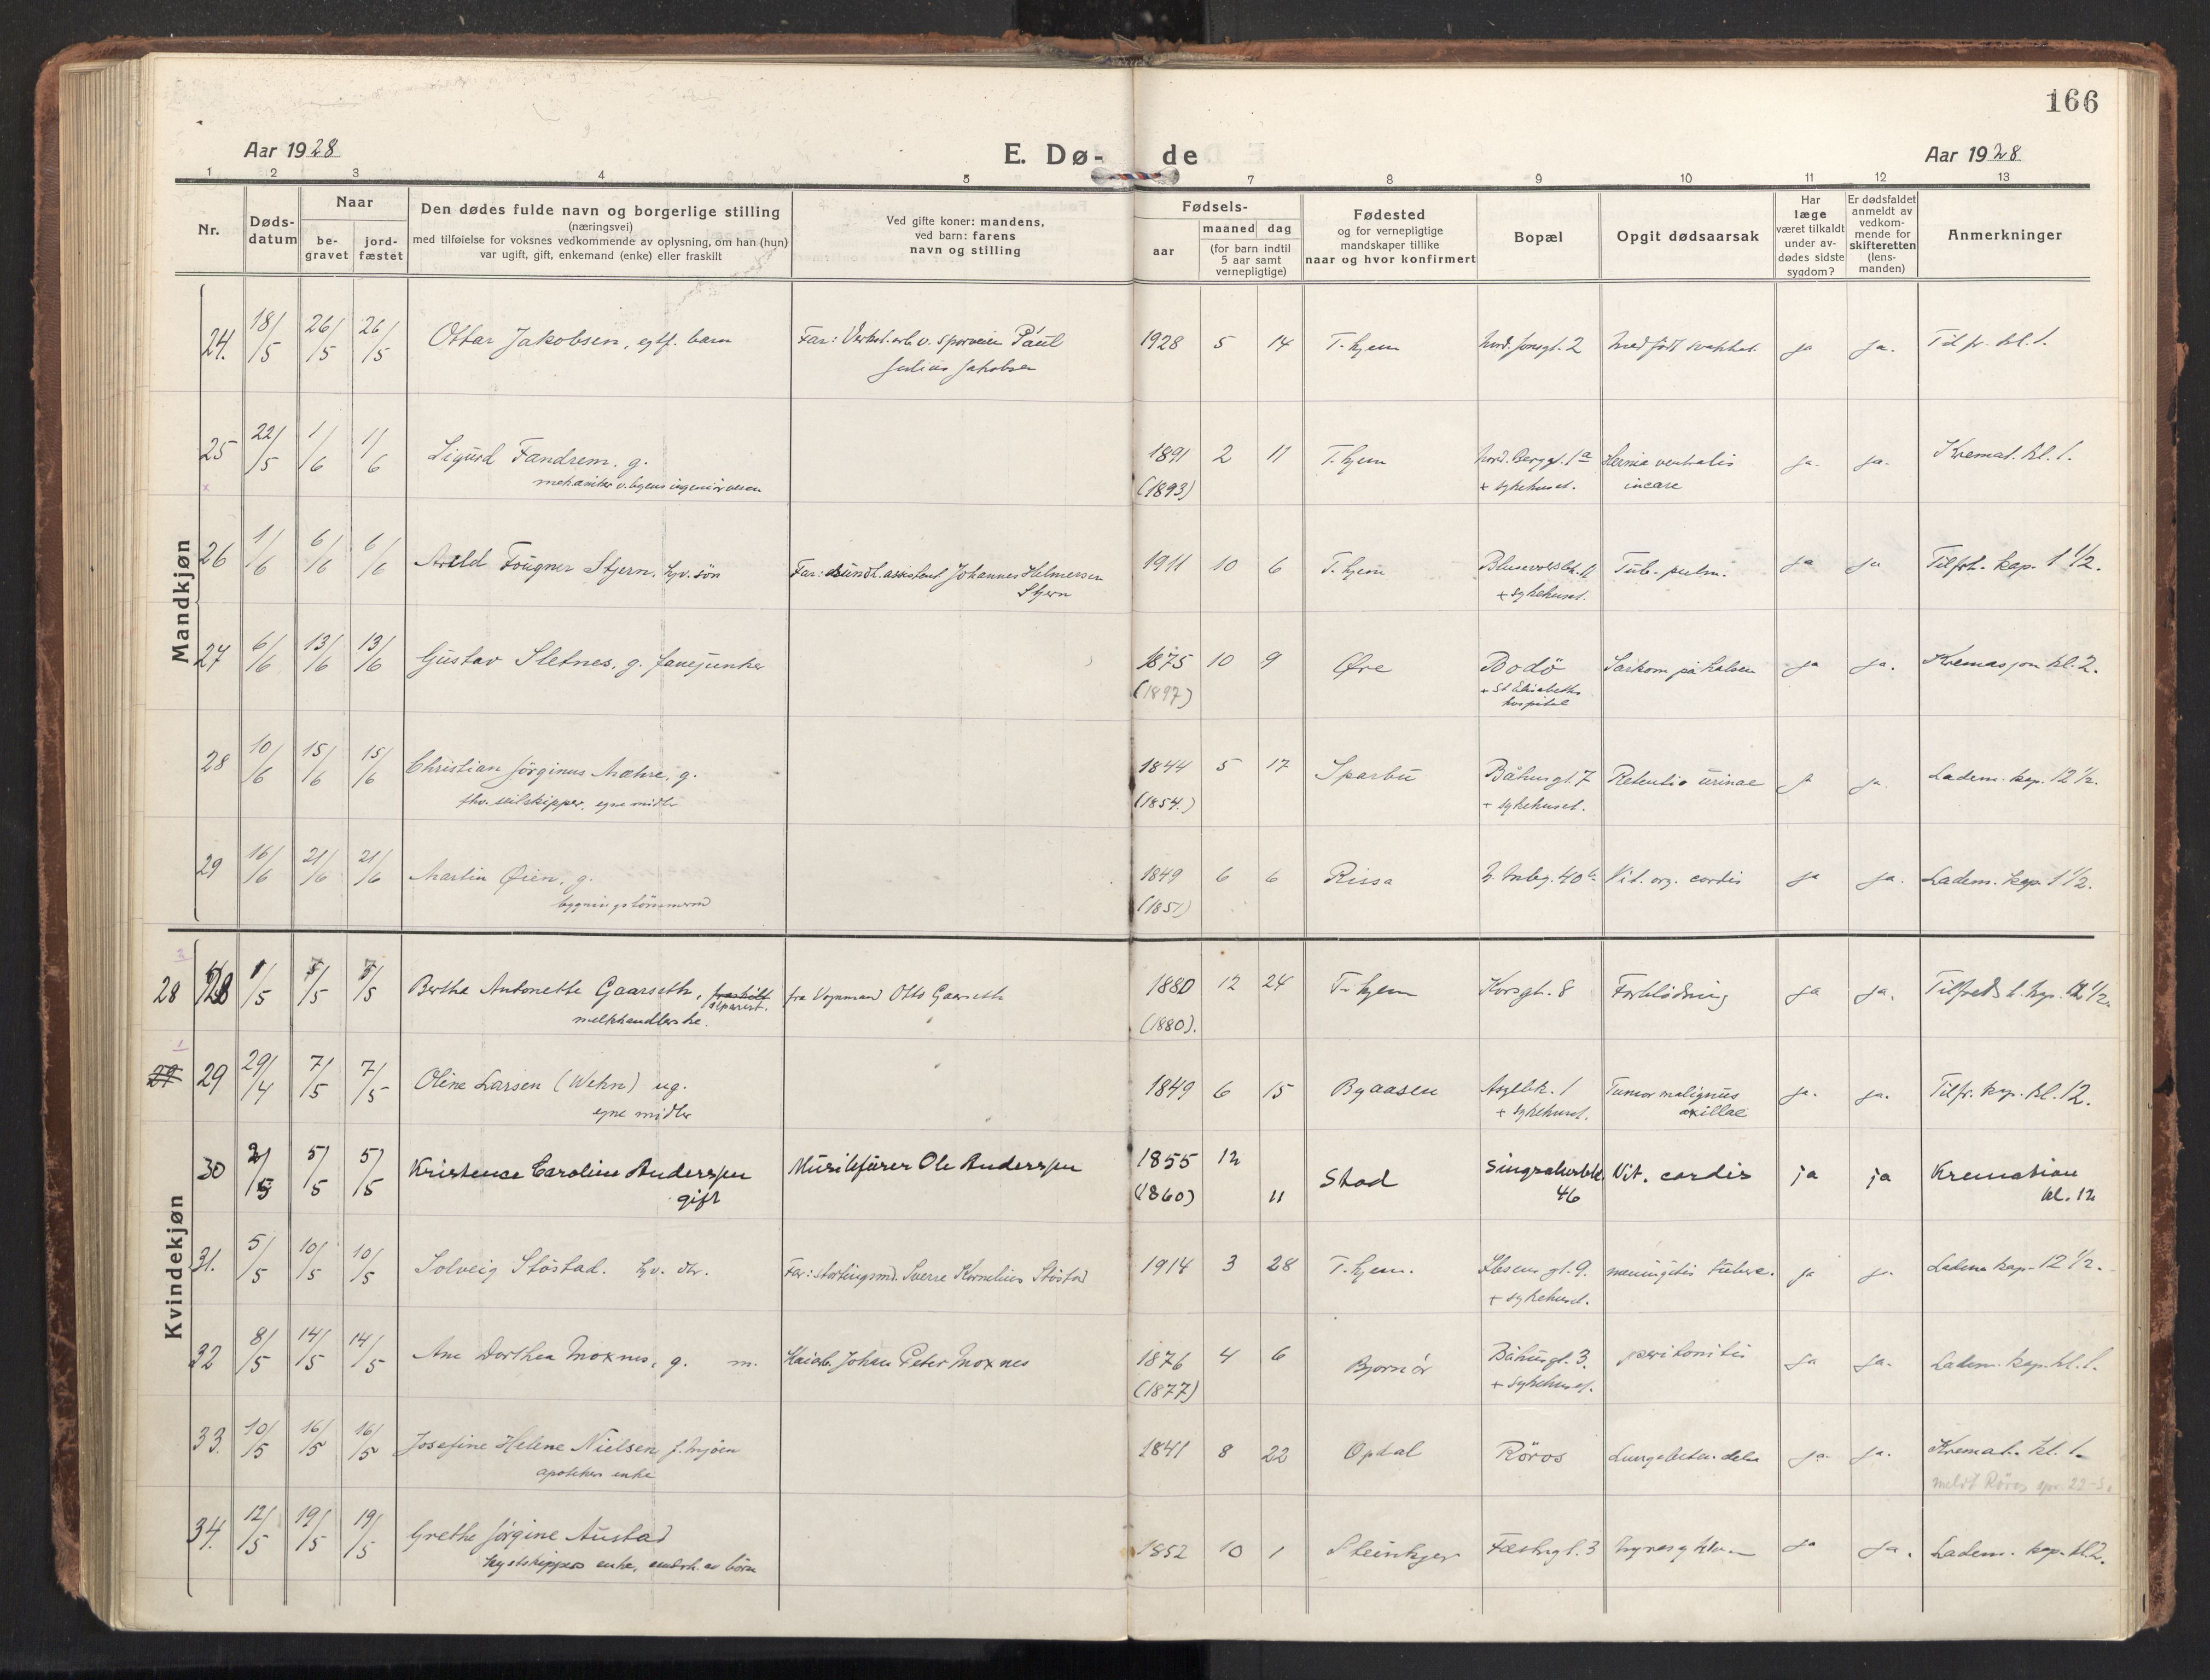 166
Aar 1928 E. Dø- de Aar 1928
1 2 3 4 5 7 8 9 10 11 12 13
Nr.
Døds-
datum
Naar
be-
gravet
jord-
fæstet
Den dødes fulde navn og borgerlige stilling
(næringsvei)
med tilføielse for voksnes vedkommende av oplysning, om han (hun)
var ugift, gift, enkemand (enke) eller fraskilt
Ved gifte koner: mandens,
ved barn: farens
navn og stilling
Fødsels-
aar
maaned dag
(for barn indtil
5 aar samt
vernepligtige)
Fødested
og for vernepligtige
mandskaper tillike
naar og hvor konfirmert
Bopæl
Opgit dødsaarsak
Har
læge
været tilkaldt
under av-
dødes sidste
sygdom?
Er dødsfaldet
anmeldt av
vedkom-
mende for
skifteretten
(lens-
manden)
Anmerkninger
Mandkjøn
24. 18/5 26/5 26/5 Ottar Jakobsen, egtf. barn Far: v. sporveien Paul 1928 5 14 T.hjem 2 ja ja. kl. 1.
Julius Jakobsen
25 22/5 1/6 1/6 Sigurd Fandrem. g. 1891 2 11 T.hjem Nord. Bergs. 1a Hernia ventralis ja. ja. Kremat. kl. 1.
mekaniker v. byens ingeniørvesen (1893) + sykehuset. incarc
26 1/6 6/6 6/6 Arild Fougner Stjern. hjv. søn Far: assistent Johannes Helmersen 1911 10 6 T.hjem Tub. pulm. ja ja Tilfr. kap. 1 1/2.
Stjern + sykehuset.
27 6/6 13/6 13/6 Gustav Sletnes, g. fanejunker 1875 10 9 Øre Bodö Sarkom på halsen ja ja. Kremasjon kl. 2.
(1897) + St Elisabeths
hospital
28 10/6 15/6 15/6 Christian Jørginus Mæhre, g. 1844 5 17 Sparbu Båhusgt. 7 Retentio urinae ja ja. Ladem. kap. 12 1/2.
fhv. seilskipper, egne midler (1854.) + sykehuset.
29 16/6 21/6 21/6 Martin Øien, g. 1849 6 6 Rissa 40b Vit. org. cordis ja ja. Ladem. kap. 1 1/2.
bygningstömmermd (1851)
Kvindekjøn
3
28 28 1/5 7/5 7/5 Bertha Antonette Gaarseth, fraskilt fra Vognmand Otto Gaarseth 1880 12 24 T.hjem Korsgt. 8 Forblödning ja ja. Tilfreds h. kap. 1/2.
separert.
melkhandlerske. (1880).
1
29 29 29/4 7/5 7/5 Oline Larsen (Wehn) ug. 1849 6 15 Byaasen Asylbk. 1 Tumor malignus ja. ja. Tilfr. kap. kl. 12.
egne midler + sykehuset. axillae
30 2/5 5/5 5/5 Kristence Caroline Anderssen Musikfører Ole Anderssen 1855 12 Stod Singsakerbk. Vit. cordis ja ja Kremation
gift (1860) 11 46 kl. 12
31. 5/5 10/5 10/5 Solveig Støstad. hjv. dtr. Far: stortingsmd. Sverre Kornelius Støstad 1914 3 28 T.hjem. Ibsens gt. 9. meningitis tuberc. ja ja. Ladem kap. 12 1/2.
+ sykehuset.
32 8/5 14/5 14/5 Ane Dorthea Moxnes, g. m. Kaiarb. Johan Peter Moxnes 1876 4 6 Bjornör Båhusgt. 3. peritonitis ja ja. Ladem. kap. kl. 1.
(1877) + sykehuset.
33. 10/5 16/5 16/5 Josefine Helene Nielsen f. Mjöen 1841 8 22 Opdal Röros Lungebetændelse ja. ja. Kremat. kl. 1.
apotekers enke meldt Røros 22-5.
34. 12/5 19/5 19/5 Grethe Jörgine Austad 1852 10 1 Steinkjer Fæstngt. 3 ja ja. Ladem. kap. kl 2.
enke, underh. av börn